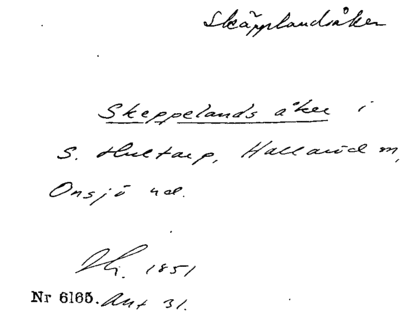 Skäpplandsåker
Skeppelands åker i
S. Hultarp, Hallaröd sn,
Onsjö hd.
1851
Nr 6165. Akt 31.